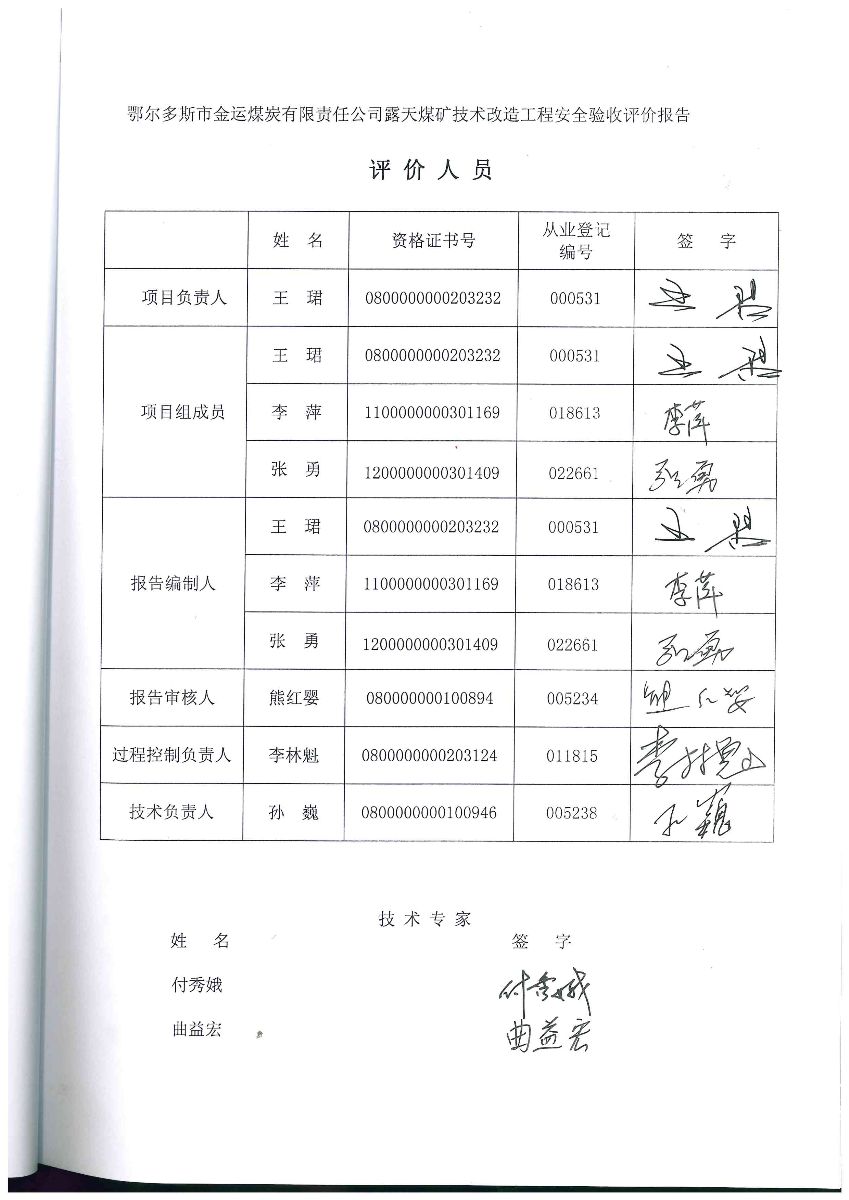 鄂尔多斯市金运煤炭有限责任公司露天煤矿技术改造工程安全验收评价报告
评 价 人 员
姓 名 资格证书号 从业登记编号 签 字
项目负责人 王 珺 0800000000203232 000531 王 珺
项目组成员 王 珺 0800000000203232 000531 王 珺
李 萍 1100000000301169 018613 李萍
张 勇 1200000000301409 022661 张勇
报告编制人 王 珺 0800000000203232 000531 王 珺
李 萍 1100000000301169 018613 李萍
张 勇 1200000000301409 022661 张勇
报告审核人 熊红婴 080000000100894 005234 熊红婴
过程控制负责人 李林魁 0800000000203124 011815 李林魁
技术负责人 孙 巍 0800000000100946 005238 孙巍
技 术 专 家
姓 名 签 字
付秀娥 付秀娥
曲益宏 曲益宏